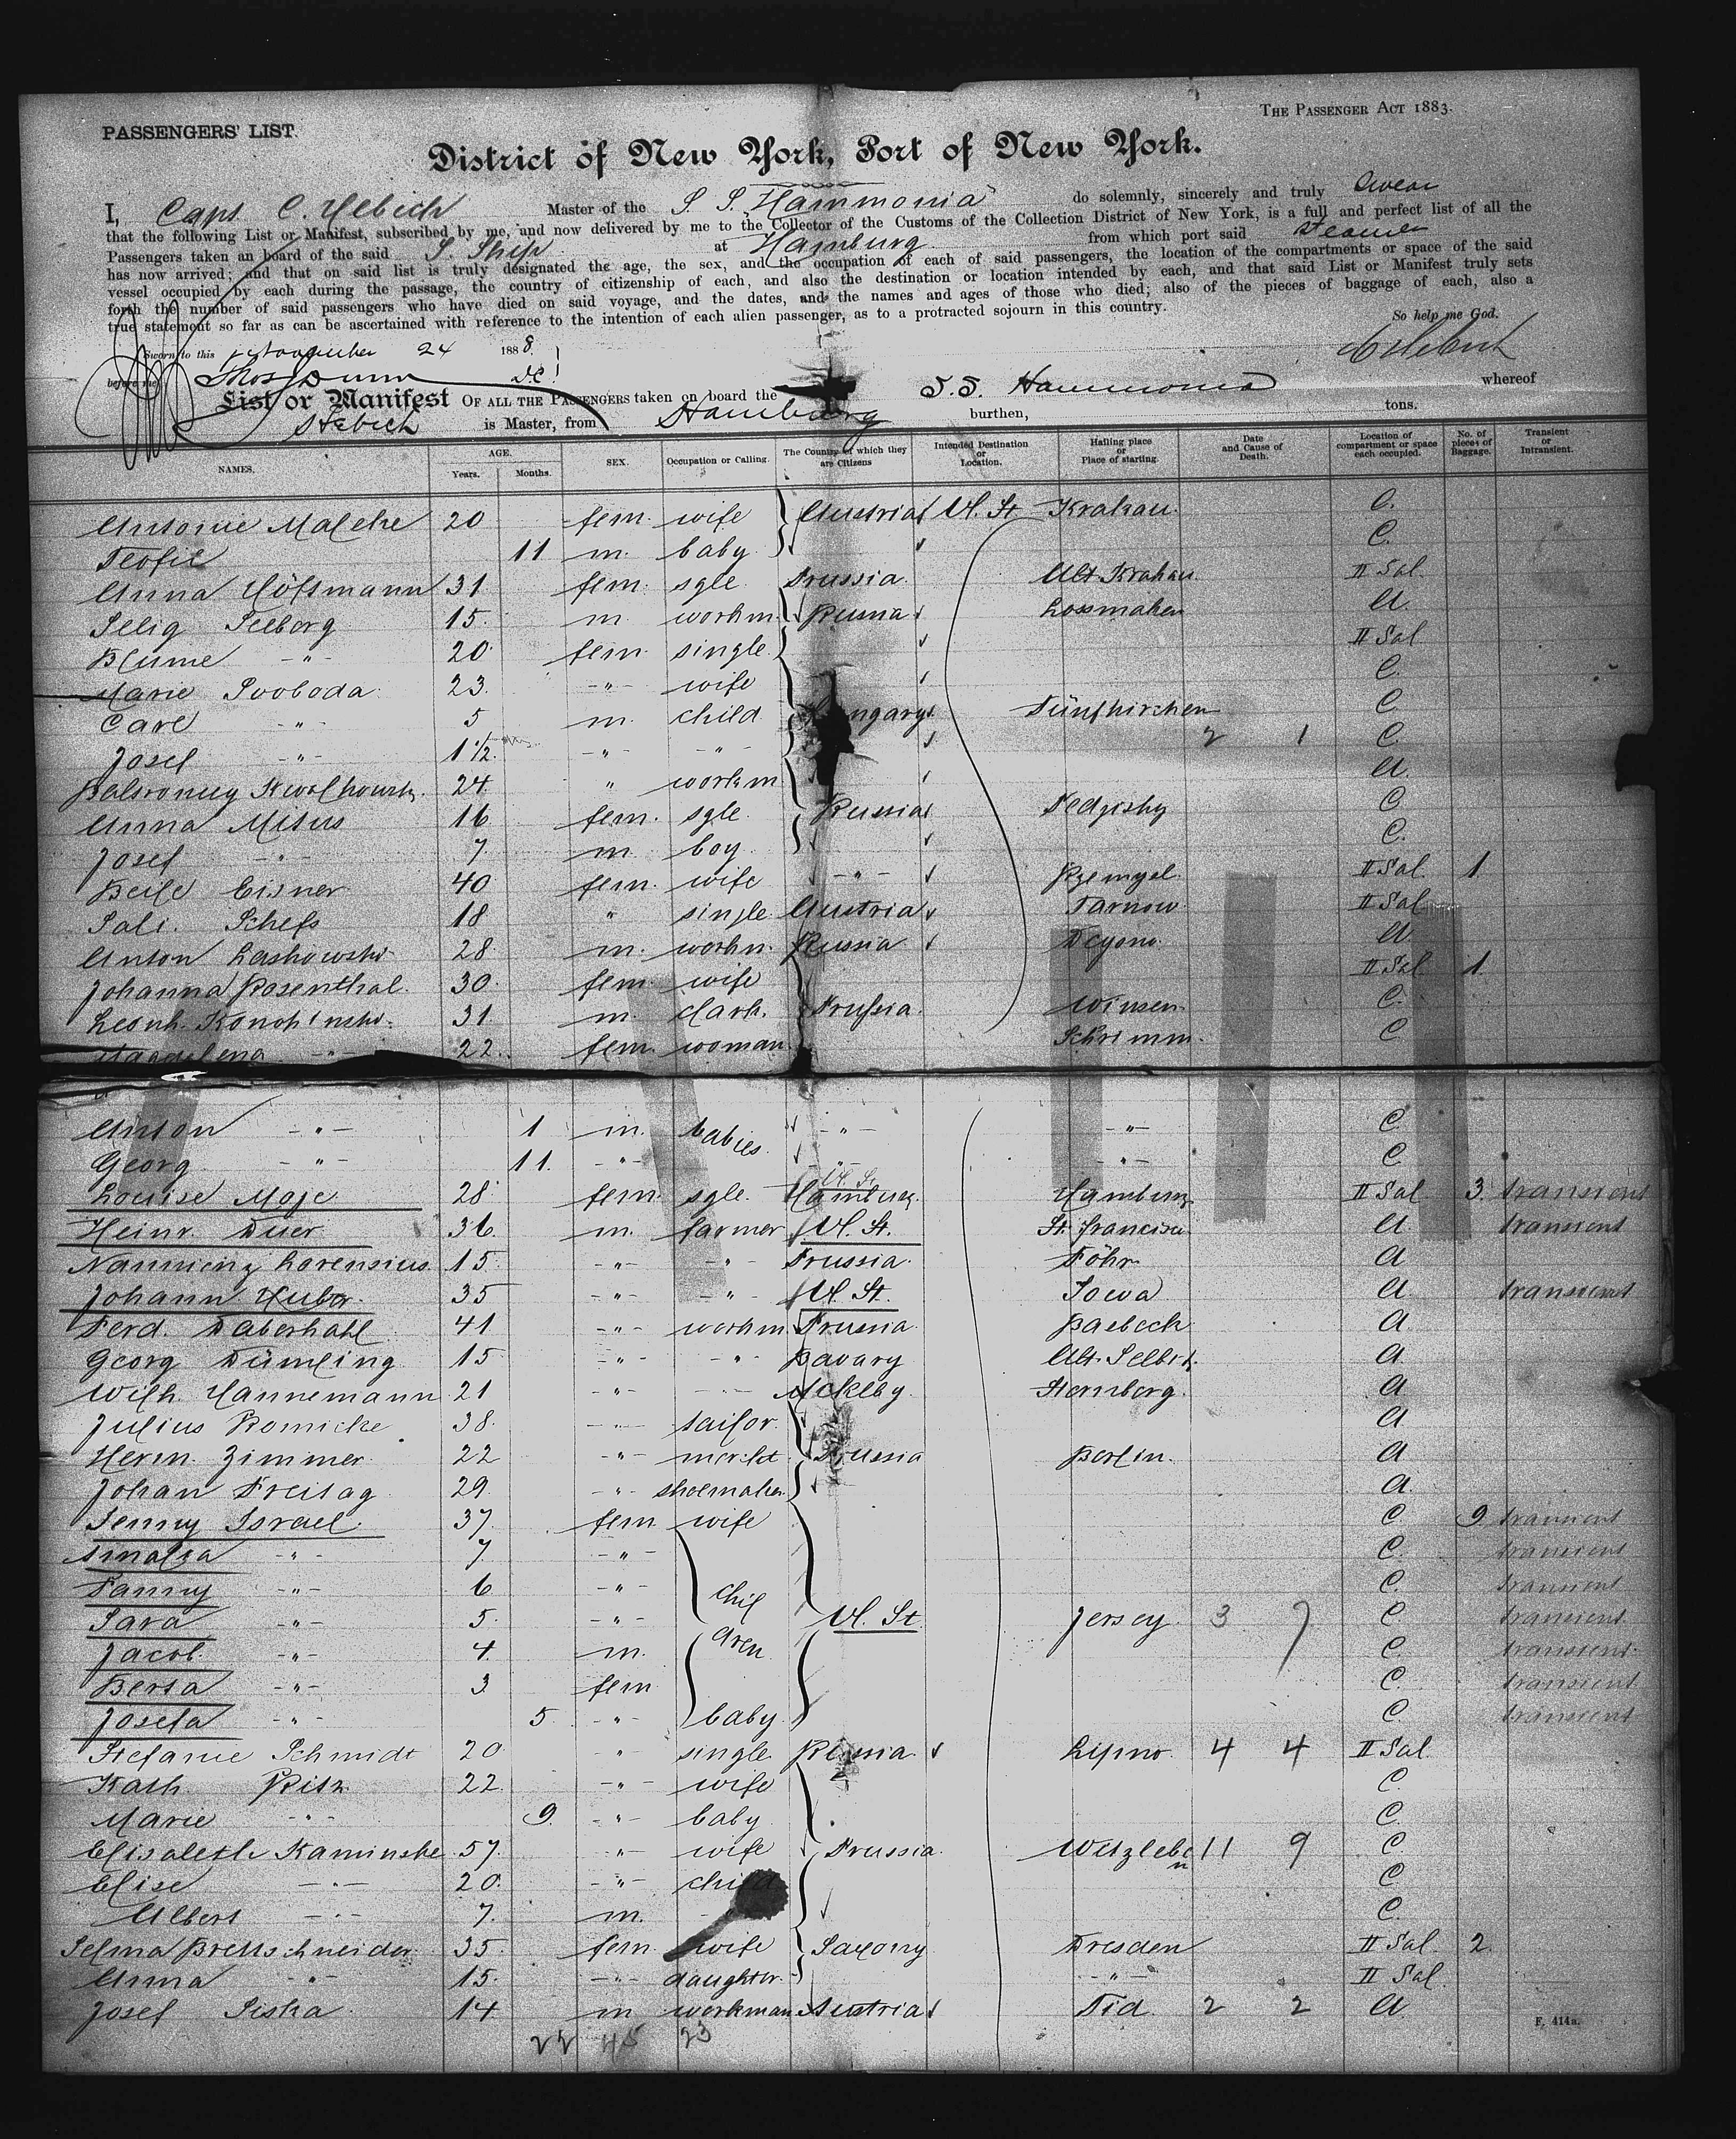 PASSENGERS' LIST.
THE PASSENGER ACT 1883.
District of New York, Port of New York.
I, Capt C. Hebich Master of the S. S. "Hammonia" do solemnly, sincerely and truly swear
that the following List or Manifest, subscribed by me, and now delivered by me to the Collector of the Customs of the Collection District of New York, is a full and perfect list of all the
Passengers taken on board of the said S. Ship at Hamburg from which port said steamer
has now arrived; and that on said list is truly designated the age, the sex, and the occupation of each of said passengers, the location of the compartments or space of the said
vessel occupied by each during the passage, the country of citizenship of each, and also the destination or location intended by each, and that said List or Manifest truly sets
forth the number of said passengers who have died on said voyage, and the dates, and the names and ages of those who died; also of the pieces of baggage of each, also a
true statement so far as can be ascertained with reference to the intention of each alien passenger, as to a protracted sojourn in this country.
So help me God.
Sworn to this November 24 1888.
C Hebich
before me Thos Dunn D.C.
List or Manifest OF ALL THE PASSENGERS taken on board the S.S. Hammonia whereof
Hebich is Master, from Hamburg burthen, tons.
NAMES. AGE. Years. Months. SEX. Occupation or Calling. The Country of which they are Citizens Intended Destination or Location. Hailing place or Place of starting. Date and Cause of Death. Location of compartment or space each occupied. No. of pieces of Baggage. Transient or Intransient.
Antonie Malche 20 fem. wife Austria U. St Krakau. C.
Teofil 11 m. baby C.
Anna Höltmann 31 fem. sgle. Prussia. Alt Krakau II Sal.
Selig Selberg 15. m. workm. Russia Lossmaken A.
Blume -"- 20 fem. single II Sal
Marie Svoboda 23. -"- wife C.
Carl -"- 5 m. child Hungary Fünfkirchen C
Josef -"- 1½ -"- -"- 2 1 C
24. " workm A.
Anna Misus 16 fem. sgle. Russia C
Josef -"- 7 m. boy C.
Beile Eisner 40 fem. wife -"- Pzemysl. II Sal. 1
Sali. Schefs 18 " single Austria Tarnow II Sal
Anton Laskowski 28. m. workm. Russia A
Johanna Rosenthal. 30. fem. wife II Sal. 1.
Leonh. 31. m. clark. Prussia. Winsen. C.
Magdalena -"- 22. fem. woman Schrimm. C
Anton -"- 1 m. babies -"- -"- C
Georg -"- 11. -"- -"- -"- C
Louise Moje 28 fem. sgle. Hamburg U. St. Hamburg II Sal 3. transient
Heinr. Duer 36. m. farmer U. St. St. Francisco A transient
Nanning Lorensius 15. -"- -"- Prussia. Föhr. A
Johann Huber 35 -"- -"- U. St. Iowa A transient
Ferd. Daberkahl 41 -"- workm. Prussia. Pasbeck A
Georg Dümling 15 -"- -"- Bavary Alt. Selbit. A.
Wilh. Hannemann 21 -"- -"- Mcklbg. Sternberg. A
Julius Romicke 38. -"- sailor A
Herm. Zimmer 22 -"- merkt. Prussia Berlin. A
Johan Freitag 29. -"- shoemaker A.
Jenny Israel 37. fem wife C 9 transient
Amalia -"- 7 -"- C. transient
Fanny -"- 6 -"- chil C. transient
Sara -"- 5. -"- U. St Jersey 3 7 C transient
Jacob. -"- 4. m. dren C. transient.
Berta -"- 3 fem C. transient
Josefa -"- 5. -"- baby C. transient
Stefanie Schmidt 20 -"- single Russia Lipno. 4 4 II Sal.
Kath. Ritz 22 -"- wife C.
Marie -"- 9. -"- baby C.
Elisabeth Kaminske 57. -"- wife Prussia. Witzleben 11 9 C
Elise -"- 20. -"- child C
Albert -"- 7. m. C.
Selma Brettschneider 35. fem. wife Saxony Dresden II Sal. 2.
Anna -"- 15. -"- daughter. -"- II Sal.
Josef Siska 14. m workman Austria Tid. 2 2 A
22 45 23
F. 414a.